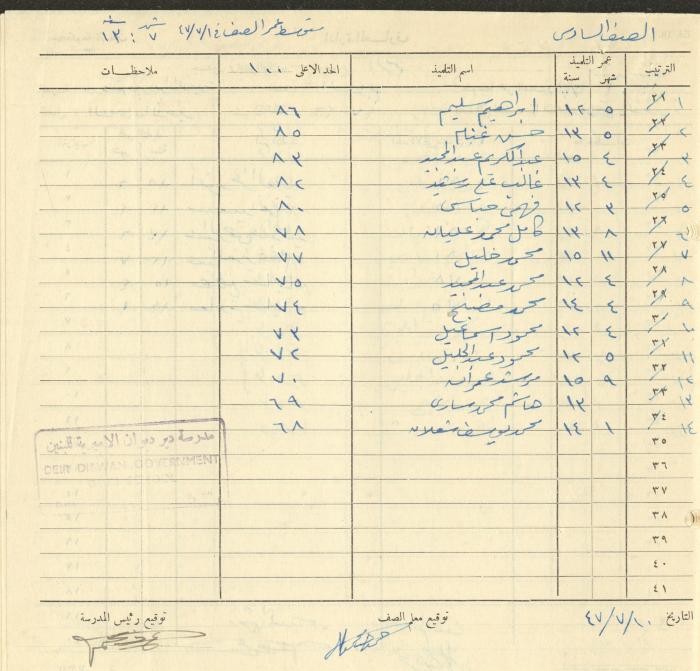 الصف السادس متوسط عمر الصف في ٤٧/٧/١ شهر ٧ : سنة ١٣
الترتيب عمر التلميذ شهر سنة اسم التلميذ الحد الاعلى ١٠٠ ملاحظات
١ ٥ ١٢ ابراهيم سليم ٨٦
٢ ٥ ١٣ حسن غنام ٨٥
٣ ٤ ١٥ عبد الكريم عبد المجيد ٨٣
٤ ٤ ١٣ غالب علي ٨٢
٥ ٣ ١٢ فهمي عباسي ٨٠
٦ ٨ ١٣ كامل محمد عليان ٧٨
٧ ١١ ١٥ محمد خليل ٧٧
٨ ٤ ١٢ محمد عبد المجيد ٧٥
٩ ٤ ١٤ محمد ٧٤
١٠ ٤ ١٢ محمود اسماعيل ٧٣
١١ ٥ ١٢ محمود عبد الجليل ٧٢
١٢ ٩ ١٥ مرشد عمران ٧٠
١٣ ١٣ هاشم محمد ٦٩
١٤ ١ ١٤ محمد يوسف شعلان ٦٨
٣٥
٣٦
٣٧
٣٨
٣٩
٤٠
٤١
مدرسة دير ديوان الاميرية للبنين
DEIR DIWAN GOVERNMENT
التاريخ ٤٧/٧/١٠ توقيع معلم الصف توقيع رئيس المدرسة